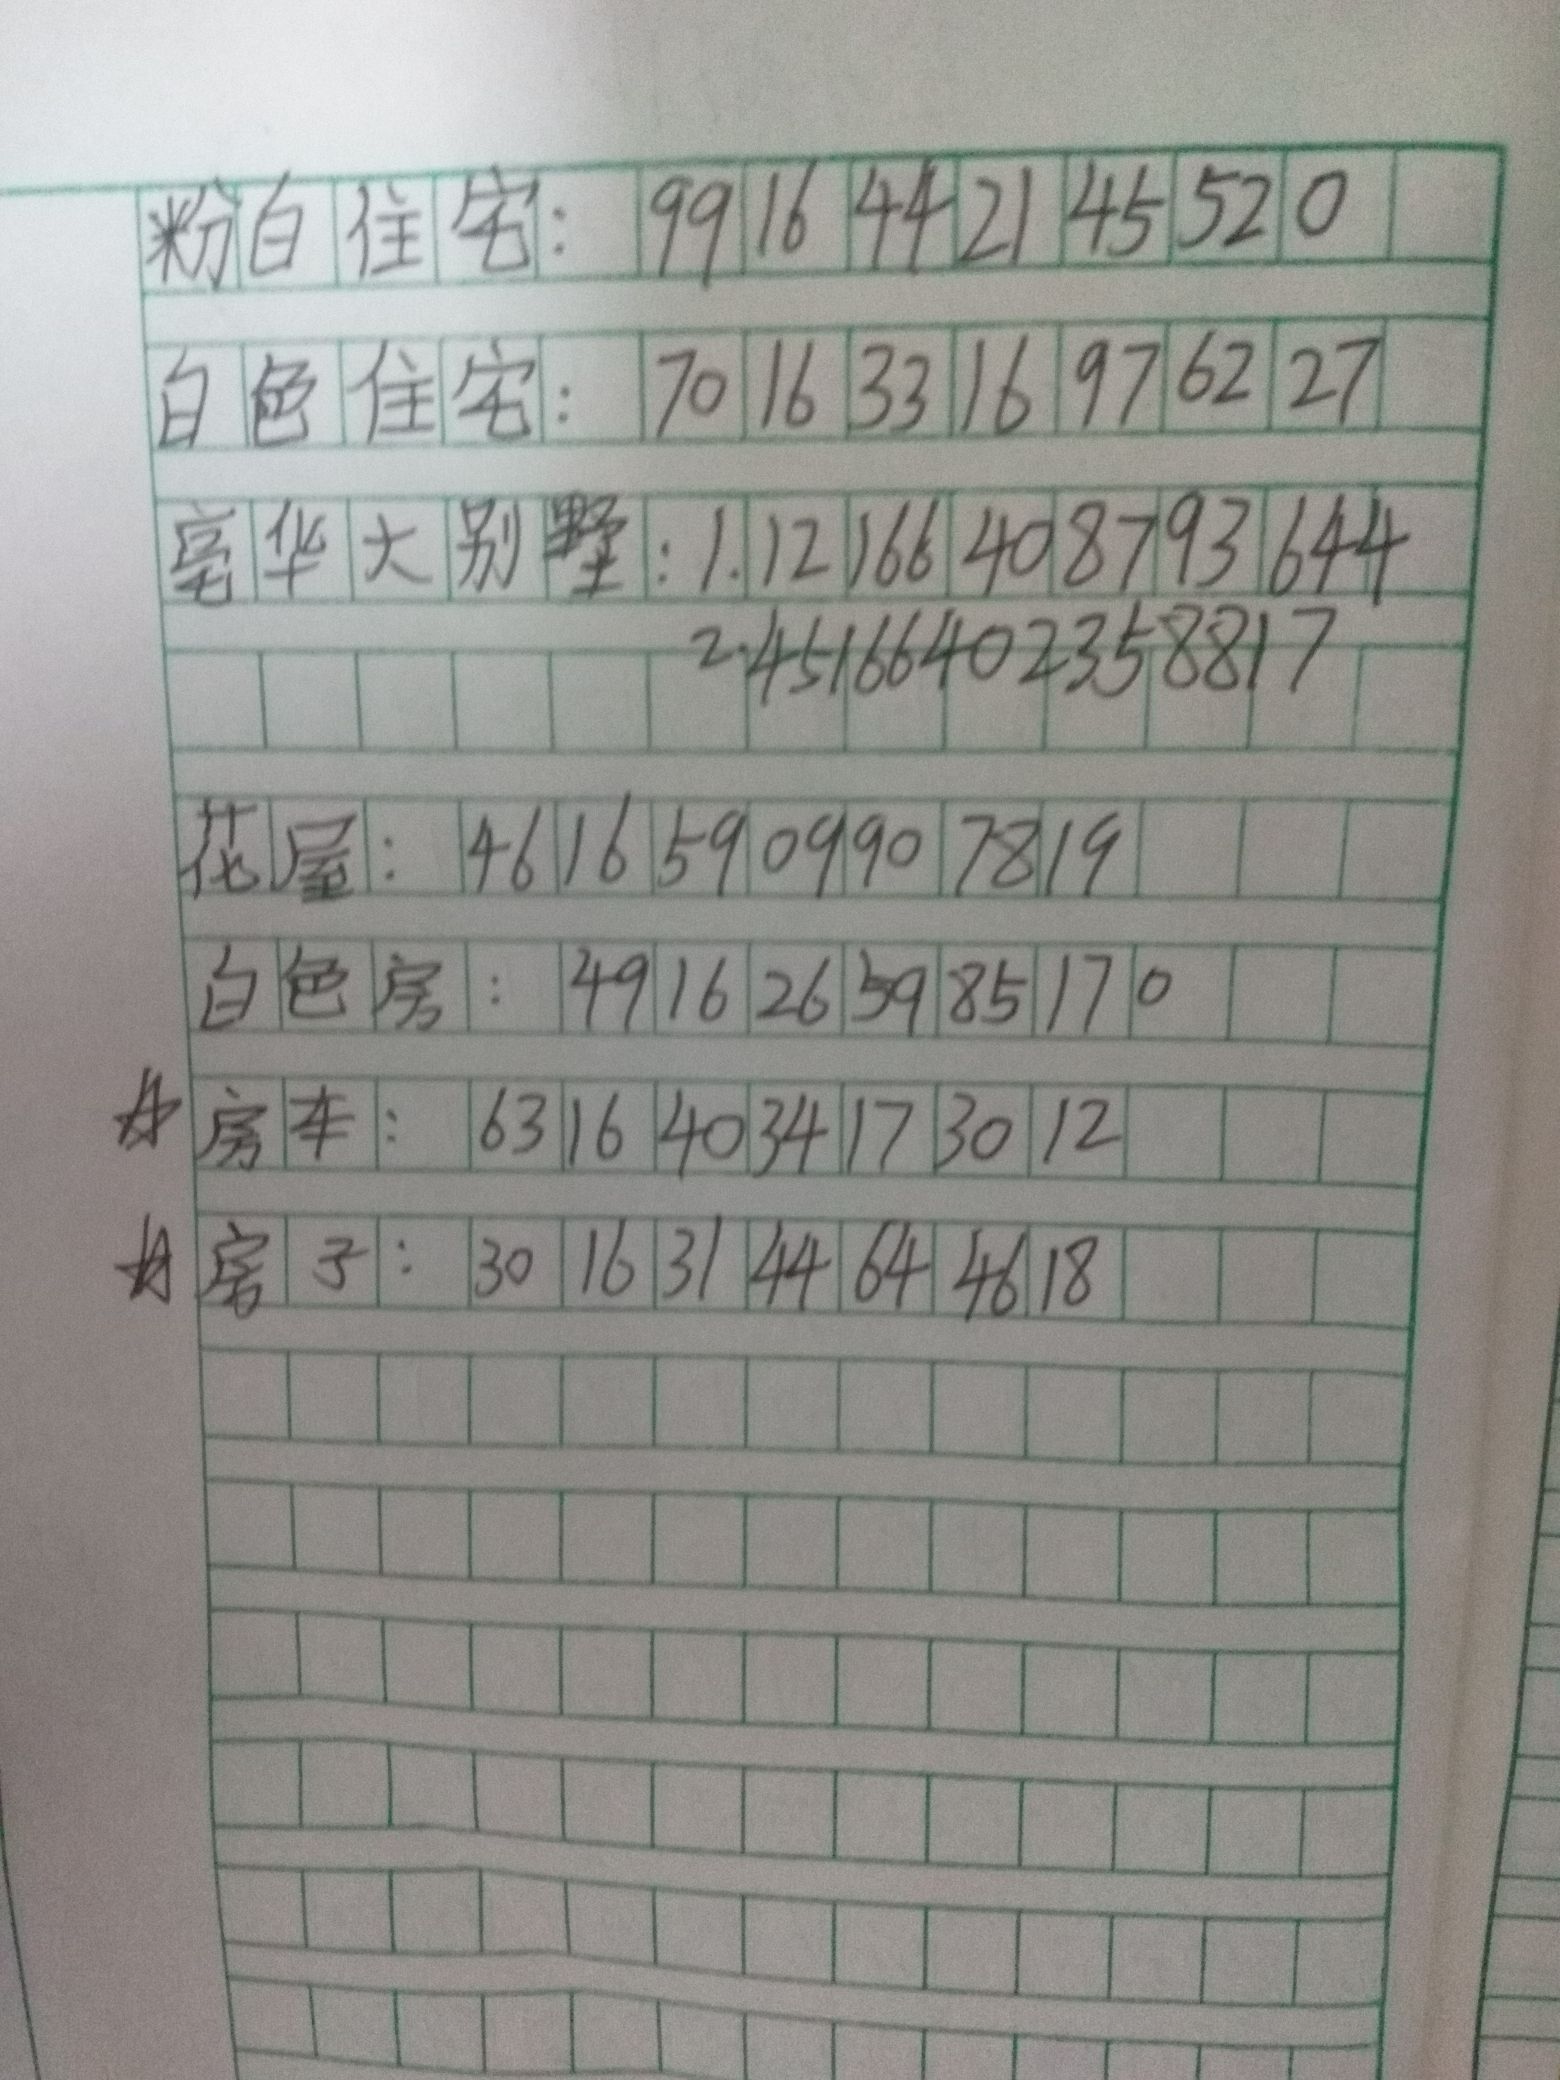 粉白住宅: 99 16 44 21 45 52 0
白色住宅: 70 16 33 16 97 62 27
豪华大别墅: 1. 12 166 40 87 93 644
2. 4516640235 8817
花屋: 46 16 59 09 90 78 19
白色房: 49 16 26 59 85 17 0
☆房车: 63 16 40 34 17 30 12
☆房子: 30 16 31 44 64 46 18